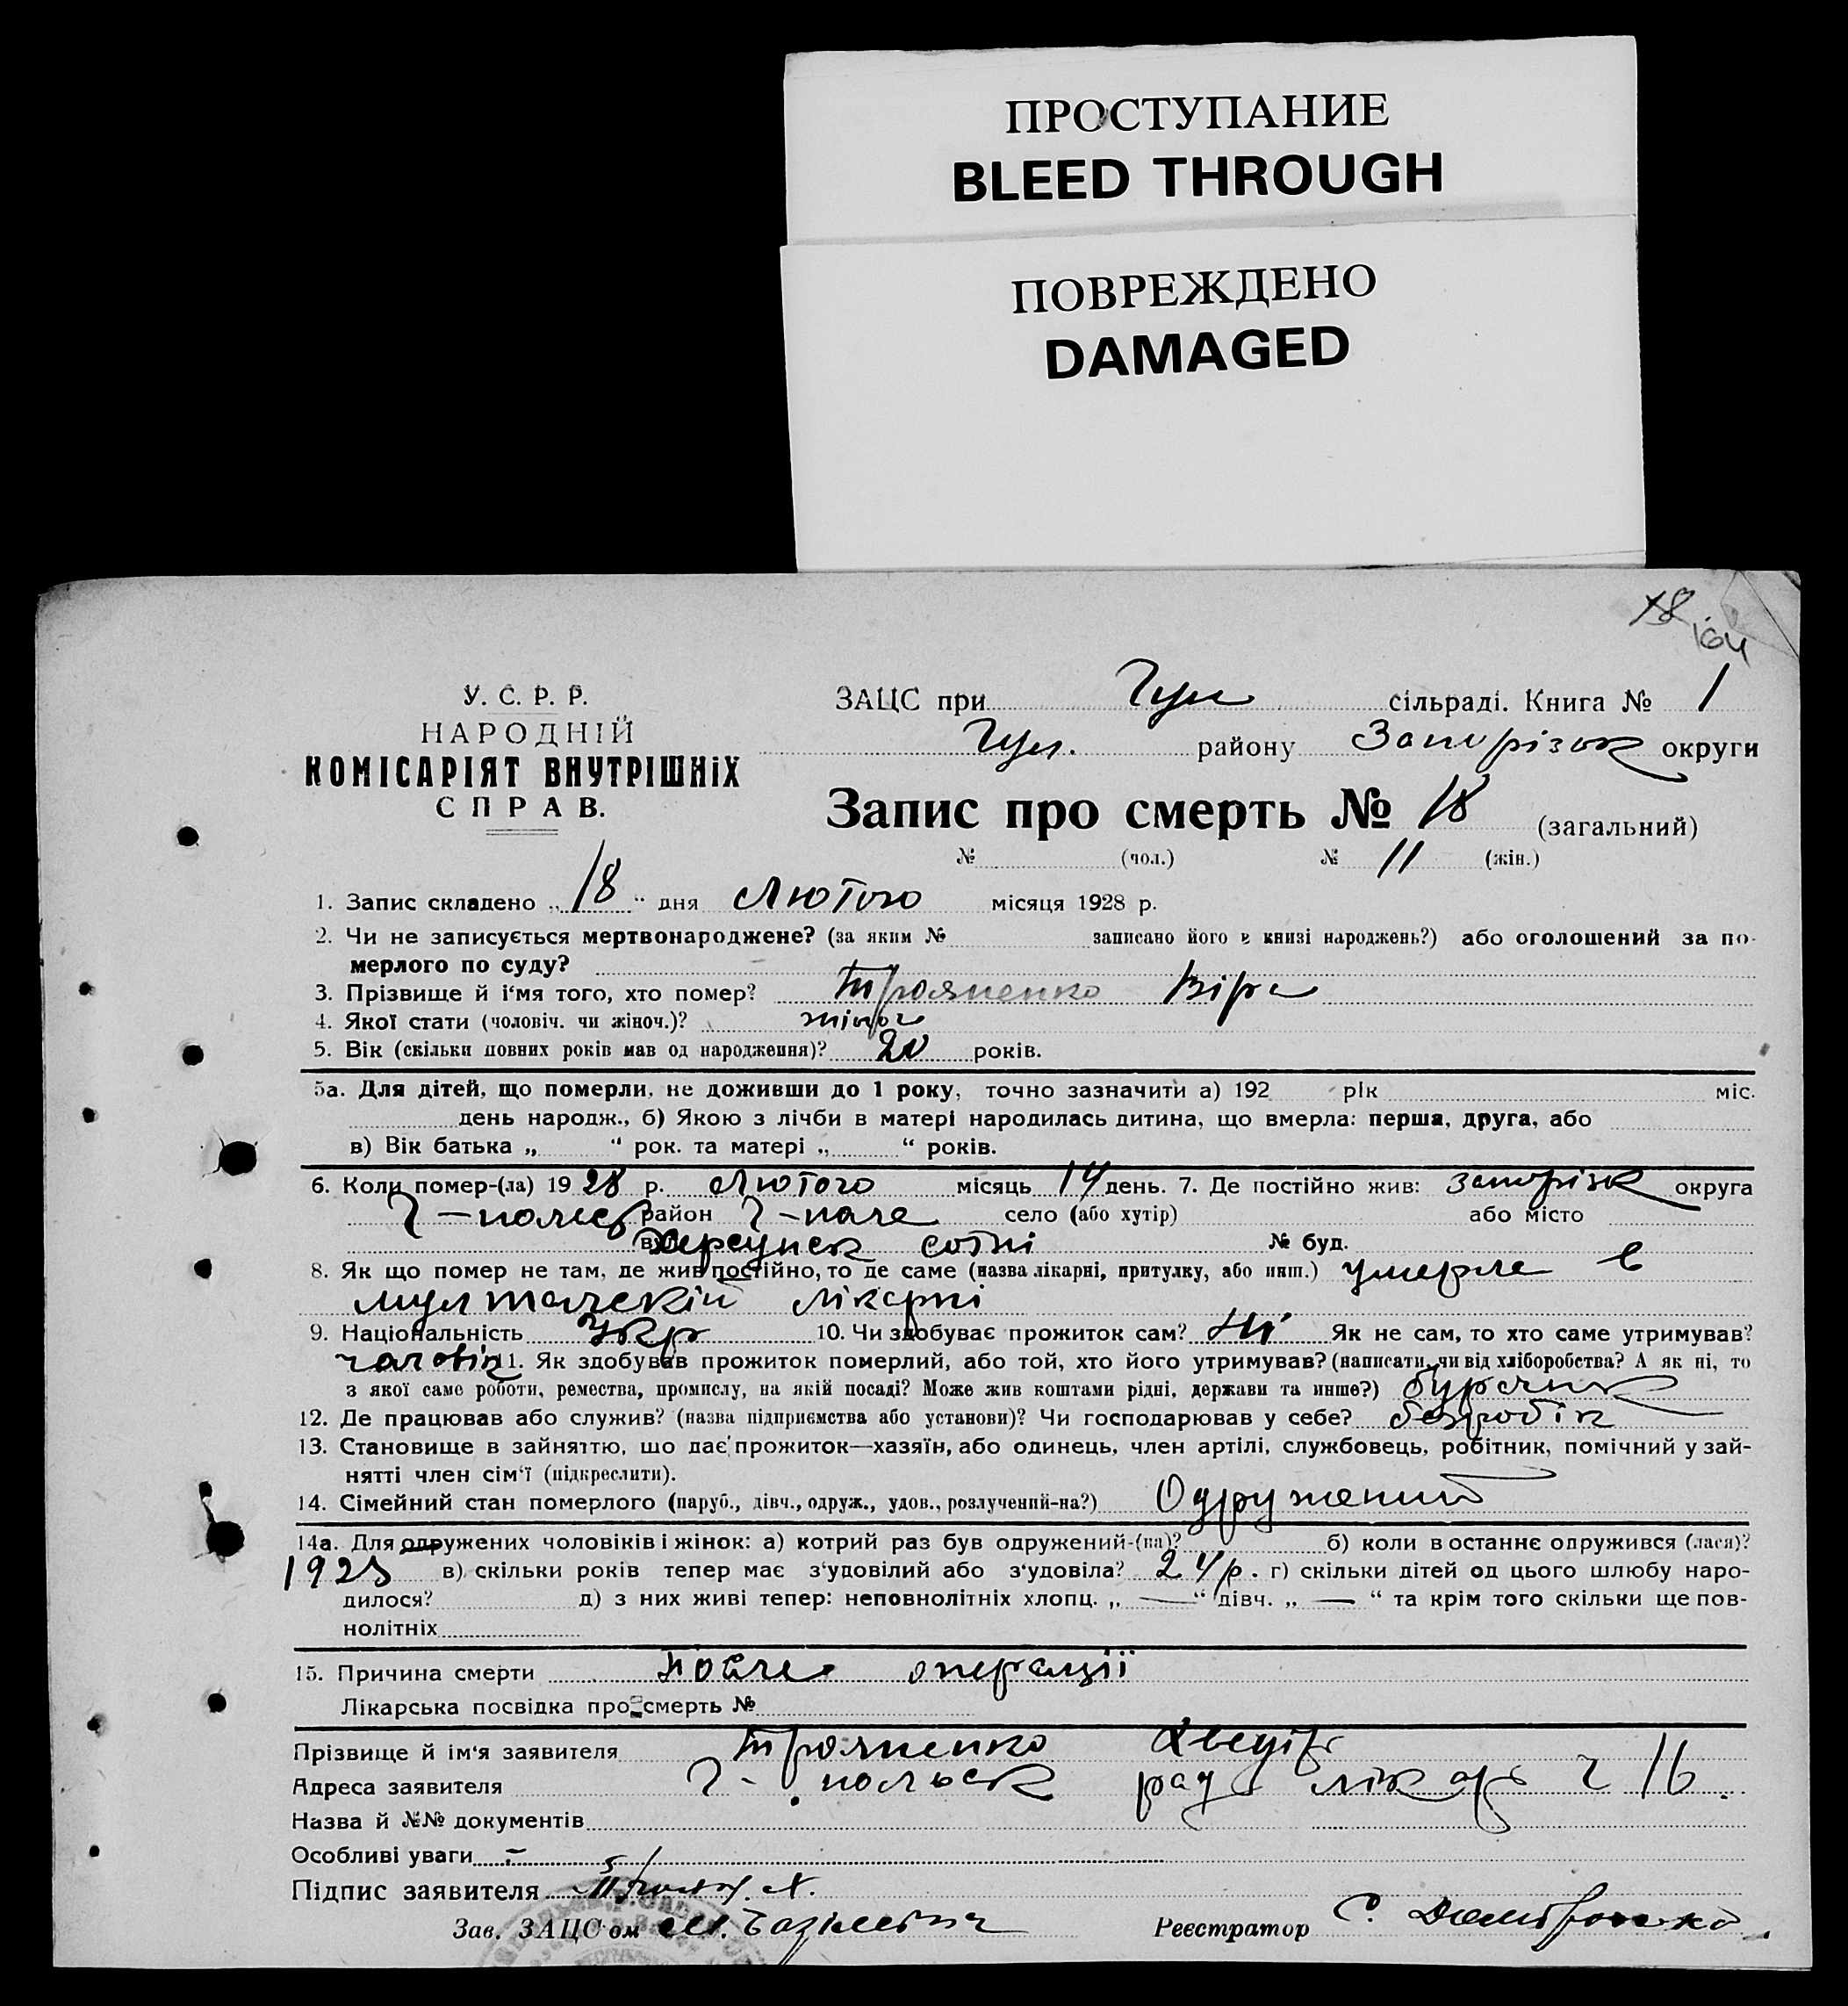 ПРОСТУПАНИЕ
BLEED THROUGH
ПОВРЕЖДЕНО
DAMAGED
18
У. С. Р. Р.
НАРОДНІЙ
КОМІСАРІЯТ ВНУТРІШНІХ
СПРАВ.
ЗАЦС при Гул сільраді. Книга № 1
Гул. району Запорізьк округи
Запис про смерть № 18 (загальний)
№ (чол.) № 11 (жін.)
1. Запис складено „ 18 “ дня Лютого місяця 1928 р.
2. Чи не записується мертвонароджене? (за яким № записано його в книзі народжень?) або оголошений за по-
мерлого по суду?
3. Прізвище й і‘мя того, хто помер? Трояненко Віра
4. Якої стати (чоловіч. чи жіноч.)? жіноч
5. Вік (скільки повних років мав од народження)? 20 років.
5а. Для дітей, що померли, не доживши до 1 року, точно зазначити а) 192 рік міс.
день народж., б) Якою з лічби в матері народилась дитина, що вмерла: перша, друга, або
в) Вік батька „ “ рок. та матері „ “ років.
6. Коли помер-(ла) 1928 р. Лютого місяць 14 день. 7. Де постійно жив: Запорізк округа
Г-польс район Г-поле село (або хутір) або місто
вул. сотні № буд.
8. Як що помер не там, де жив постійно, то де саме (назва лікарні, притулку, або инш.) умерла в
лікарні
9. Національність Укр 10. Чи здобуває прожиток сам? Ні Як не сам, то хто саме утримував?
чаловік 11. Як здобував прожиток померлий, або той, хто його утримував? (написати, чи від хліборобства? А як ні, то
з якої саме роботи, ремества, промислу, на якій посаді? Може жив коштами рідні, держави та инше?)
12. Де працював або служив? (назва підприємства або установи)? Чи господарював у себе?
13. Становище в зайняттю, що дає прожиток—хазяїн, або одинець, член артілі, службовець, робітник, помічний у зай-
нятті член сім‘ї (підкреслити).
14. Сімейний стан померлого (паруб., дівч., одруж., удов., розлучений-на?) Одружений
14а. Для одружених чоловіків і жінок: а) котрий раз був одружений-(на)? б) коли в останнє одружився (лася)?
1925 в) скільки років тепер має з‘удовілий або з‘удовіла? 24 р. г) скільки дітей од цього шлюбу наро-
дилося? д) з них живі тепер: неповнолітніх хлопц. „ — “ дівч. „ — “ та крім того скільки ще пов-
нолітніх
15. Причина смерти После операції
Лікарська посвідка про смерть №
Прізвище й ім‘я заявителя Трояненко
Адреса заявителя Г-польск рад лікарь 16
Назва й №№ документів
Особливі уваги —
Підпис заявителя
Зав. ЗАЦС‘ом
Реєстратор С.